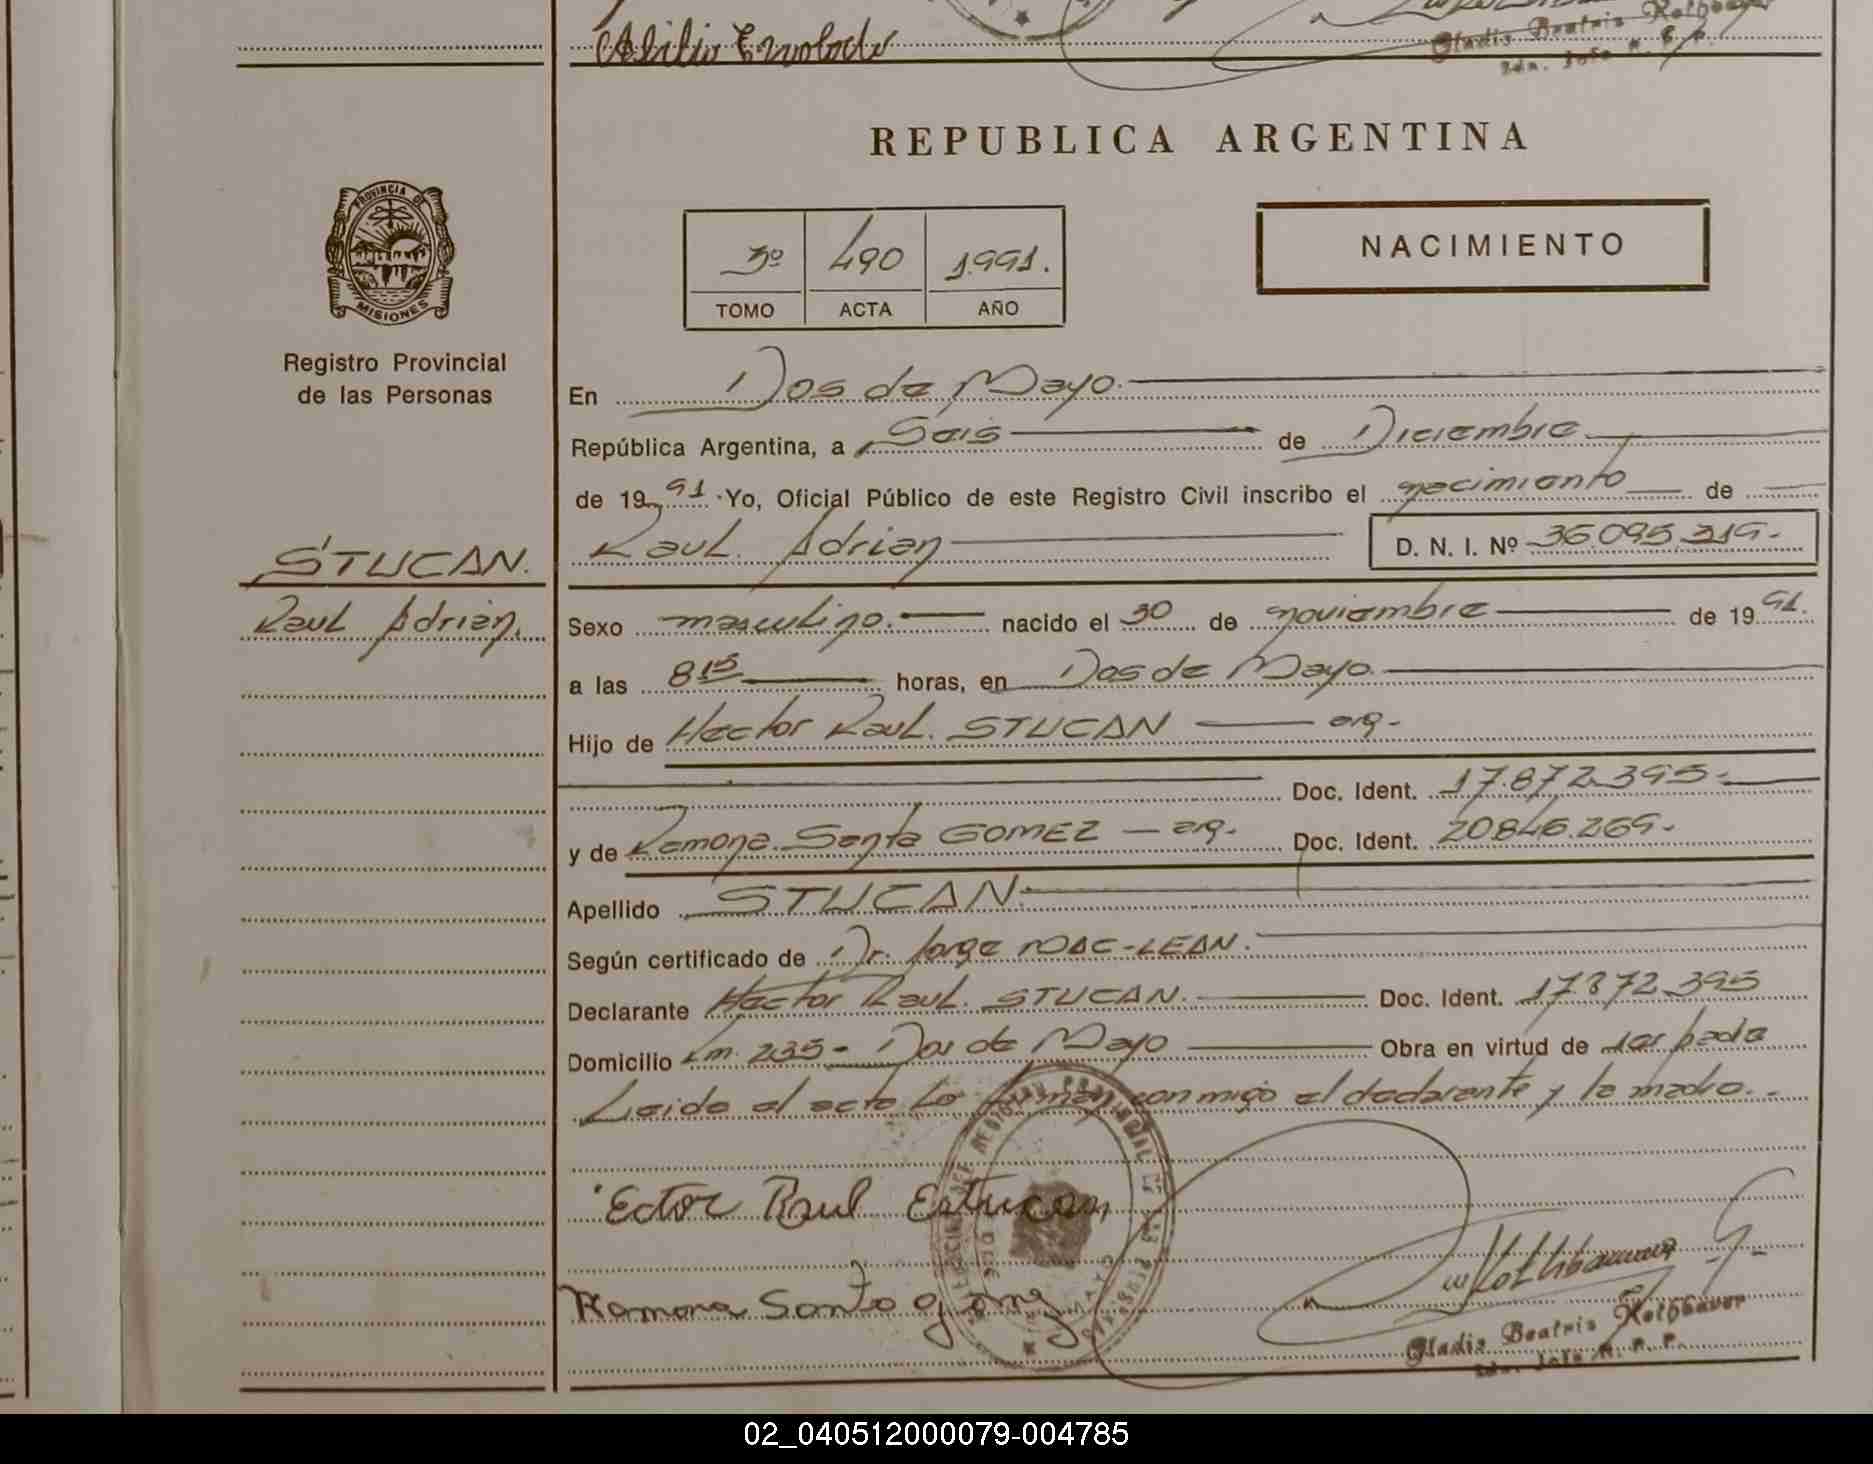 Gladis Beatriz Rothbauer
REPUBLICA ARGENTINA
PROVINCIA DE
MISIONES
3º 490 1.991.
TOMO ACTA AÑO
NACIMIENTO
Registro Provincial
de las Personas
En Dos de Mayo.
República Argentina, a Seis de Diciembre
de 19 91 Yo, Oficial Público de este Registro Civil inscribo el nacimiento de
Raul Adrian D. N. I. Nº 36.095.319.-
STUCAN.
Raul Adrian.
Sexo masculino. nacido el 30 de noviembre de 19 91.
a las 8 15 horas, en Dos de Mayo.
Hijo de Hector Raul. STUCAN arg-
Doc. Ident. 17.872.395-
y de Ramona Santa GOMEZ - arg- Doc. Ident. 20846.269-
Apellido STUCAN.
Según certificado de Dr. Jorge MAC-LEAN.
Declarante Hector Raul. STUCAN. Doc. Ident. 17872395
Domicilio km. 235- Dos de Mayo Obra en virtud de ser padre
Leido el acta la firman conmigo el declarante y la madre.-
Ector Raul Estucan
Ramona Santa
Gladis Beatriz Rothbauer
02_040512000079-004785